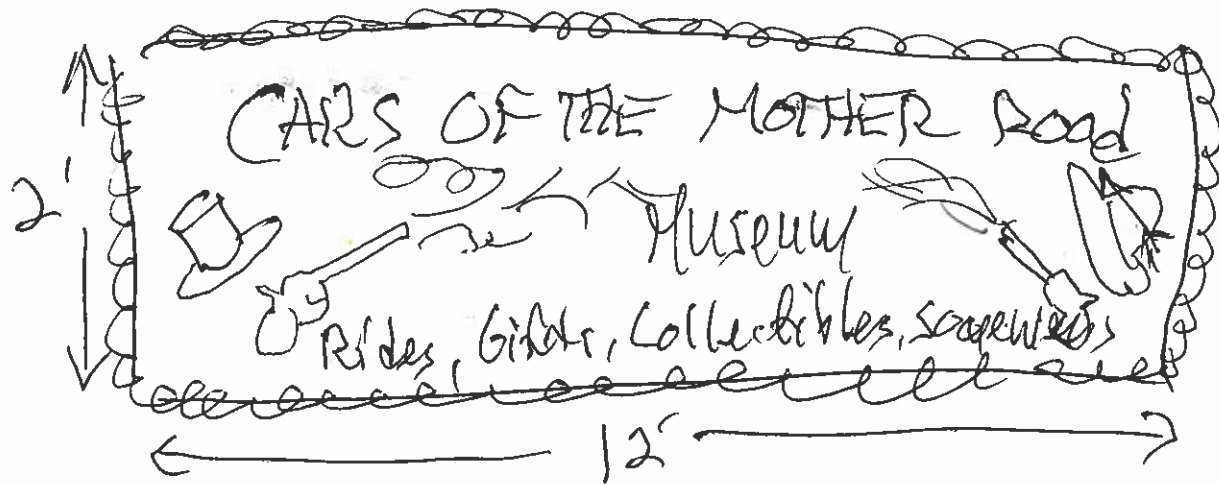 CARS OF THE MOTHER Road
2'
Museum
Rides, Gifts, Collectibles, souvenirs
12'